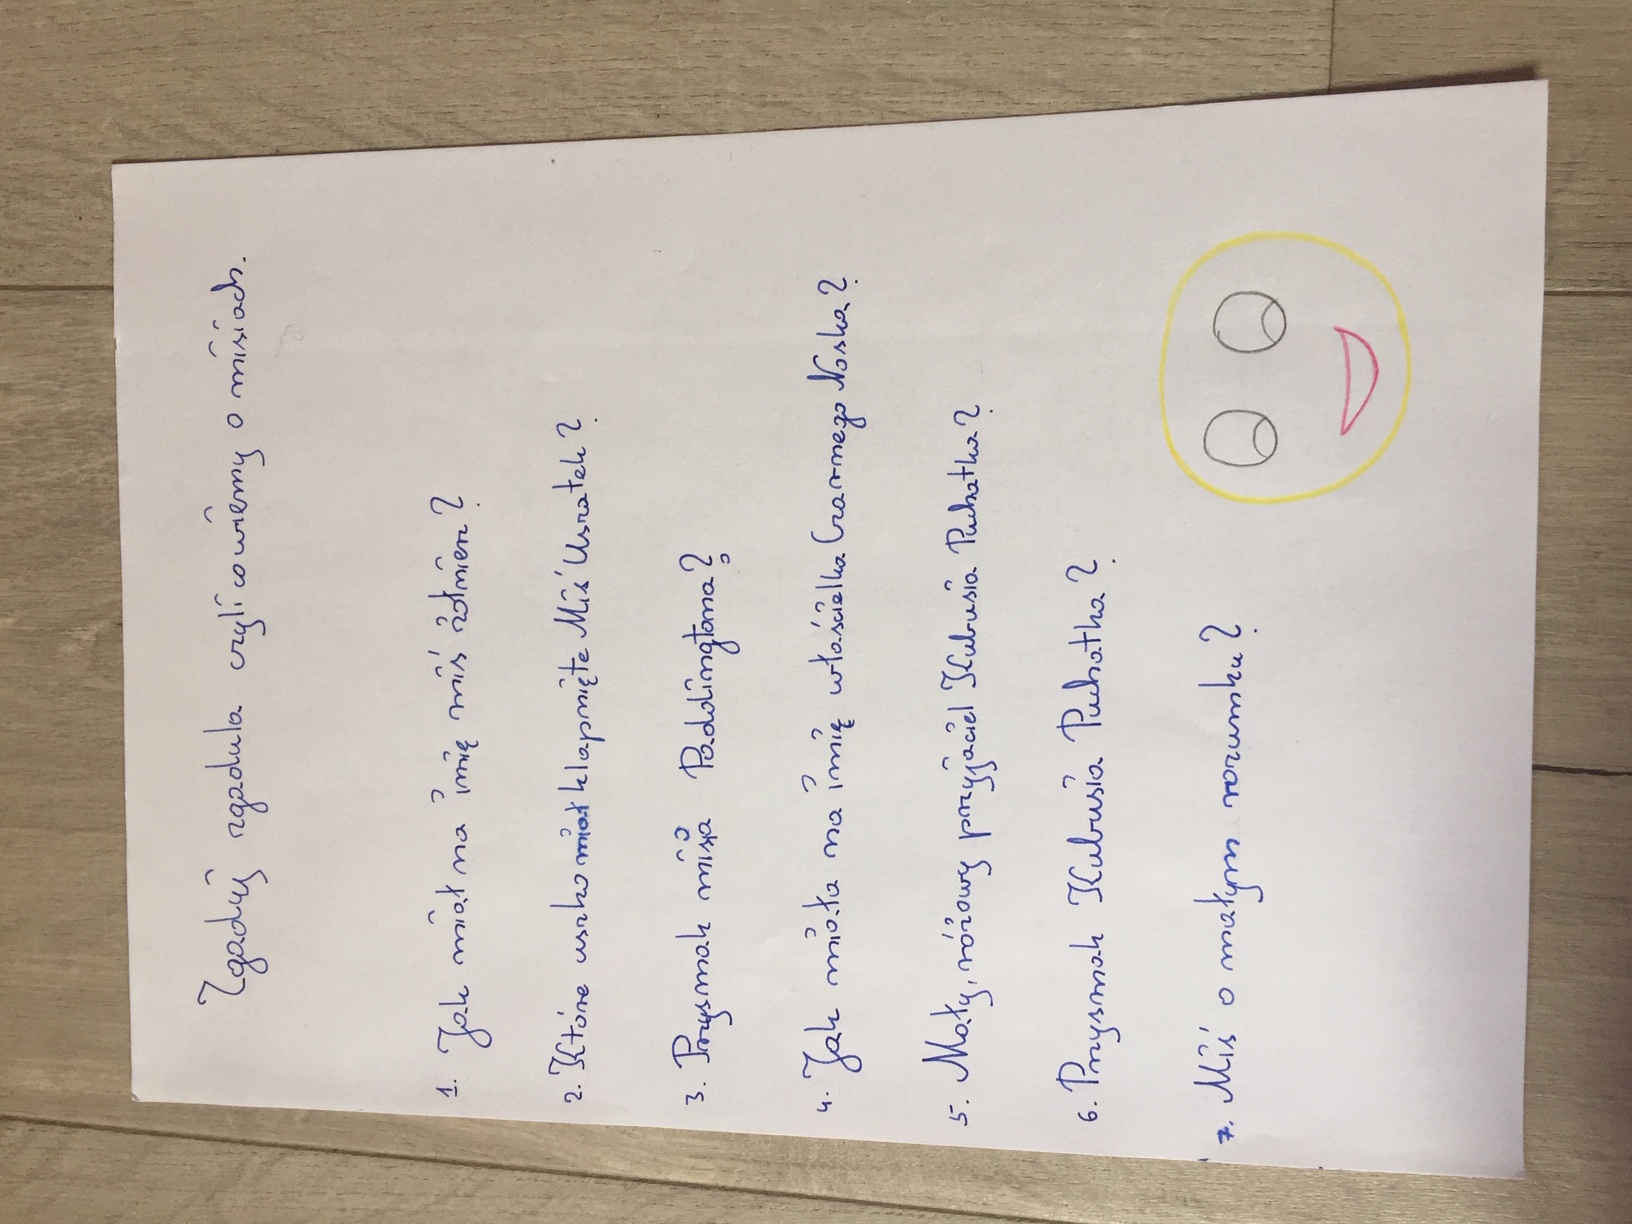 Zgaduj zgadula czyli co wiemy o misiach.
1. Jak miał na imię miś żołnierz?
2. Które uszko miał klapnięte Miś Uszatek?
3. Przysmak misia Paddingtona?
4. Jak miała na imię właścielka Czarnego Noska?
5. Mały, różowy przyjaciel Kubusia Puchatka?
6. Przysmak Kubusia Puchatka?
7. Miś o małym rozumku?